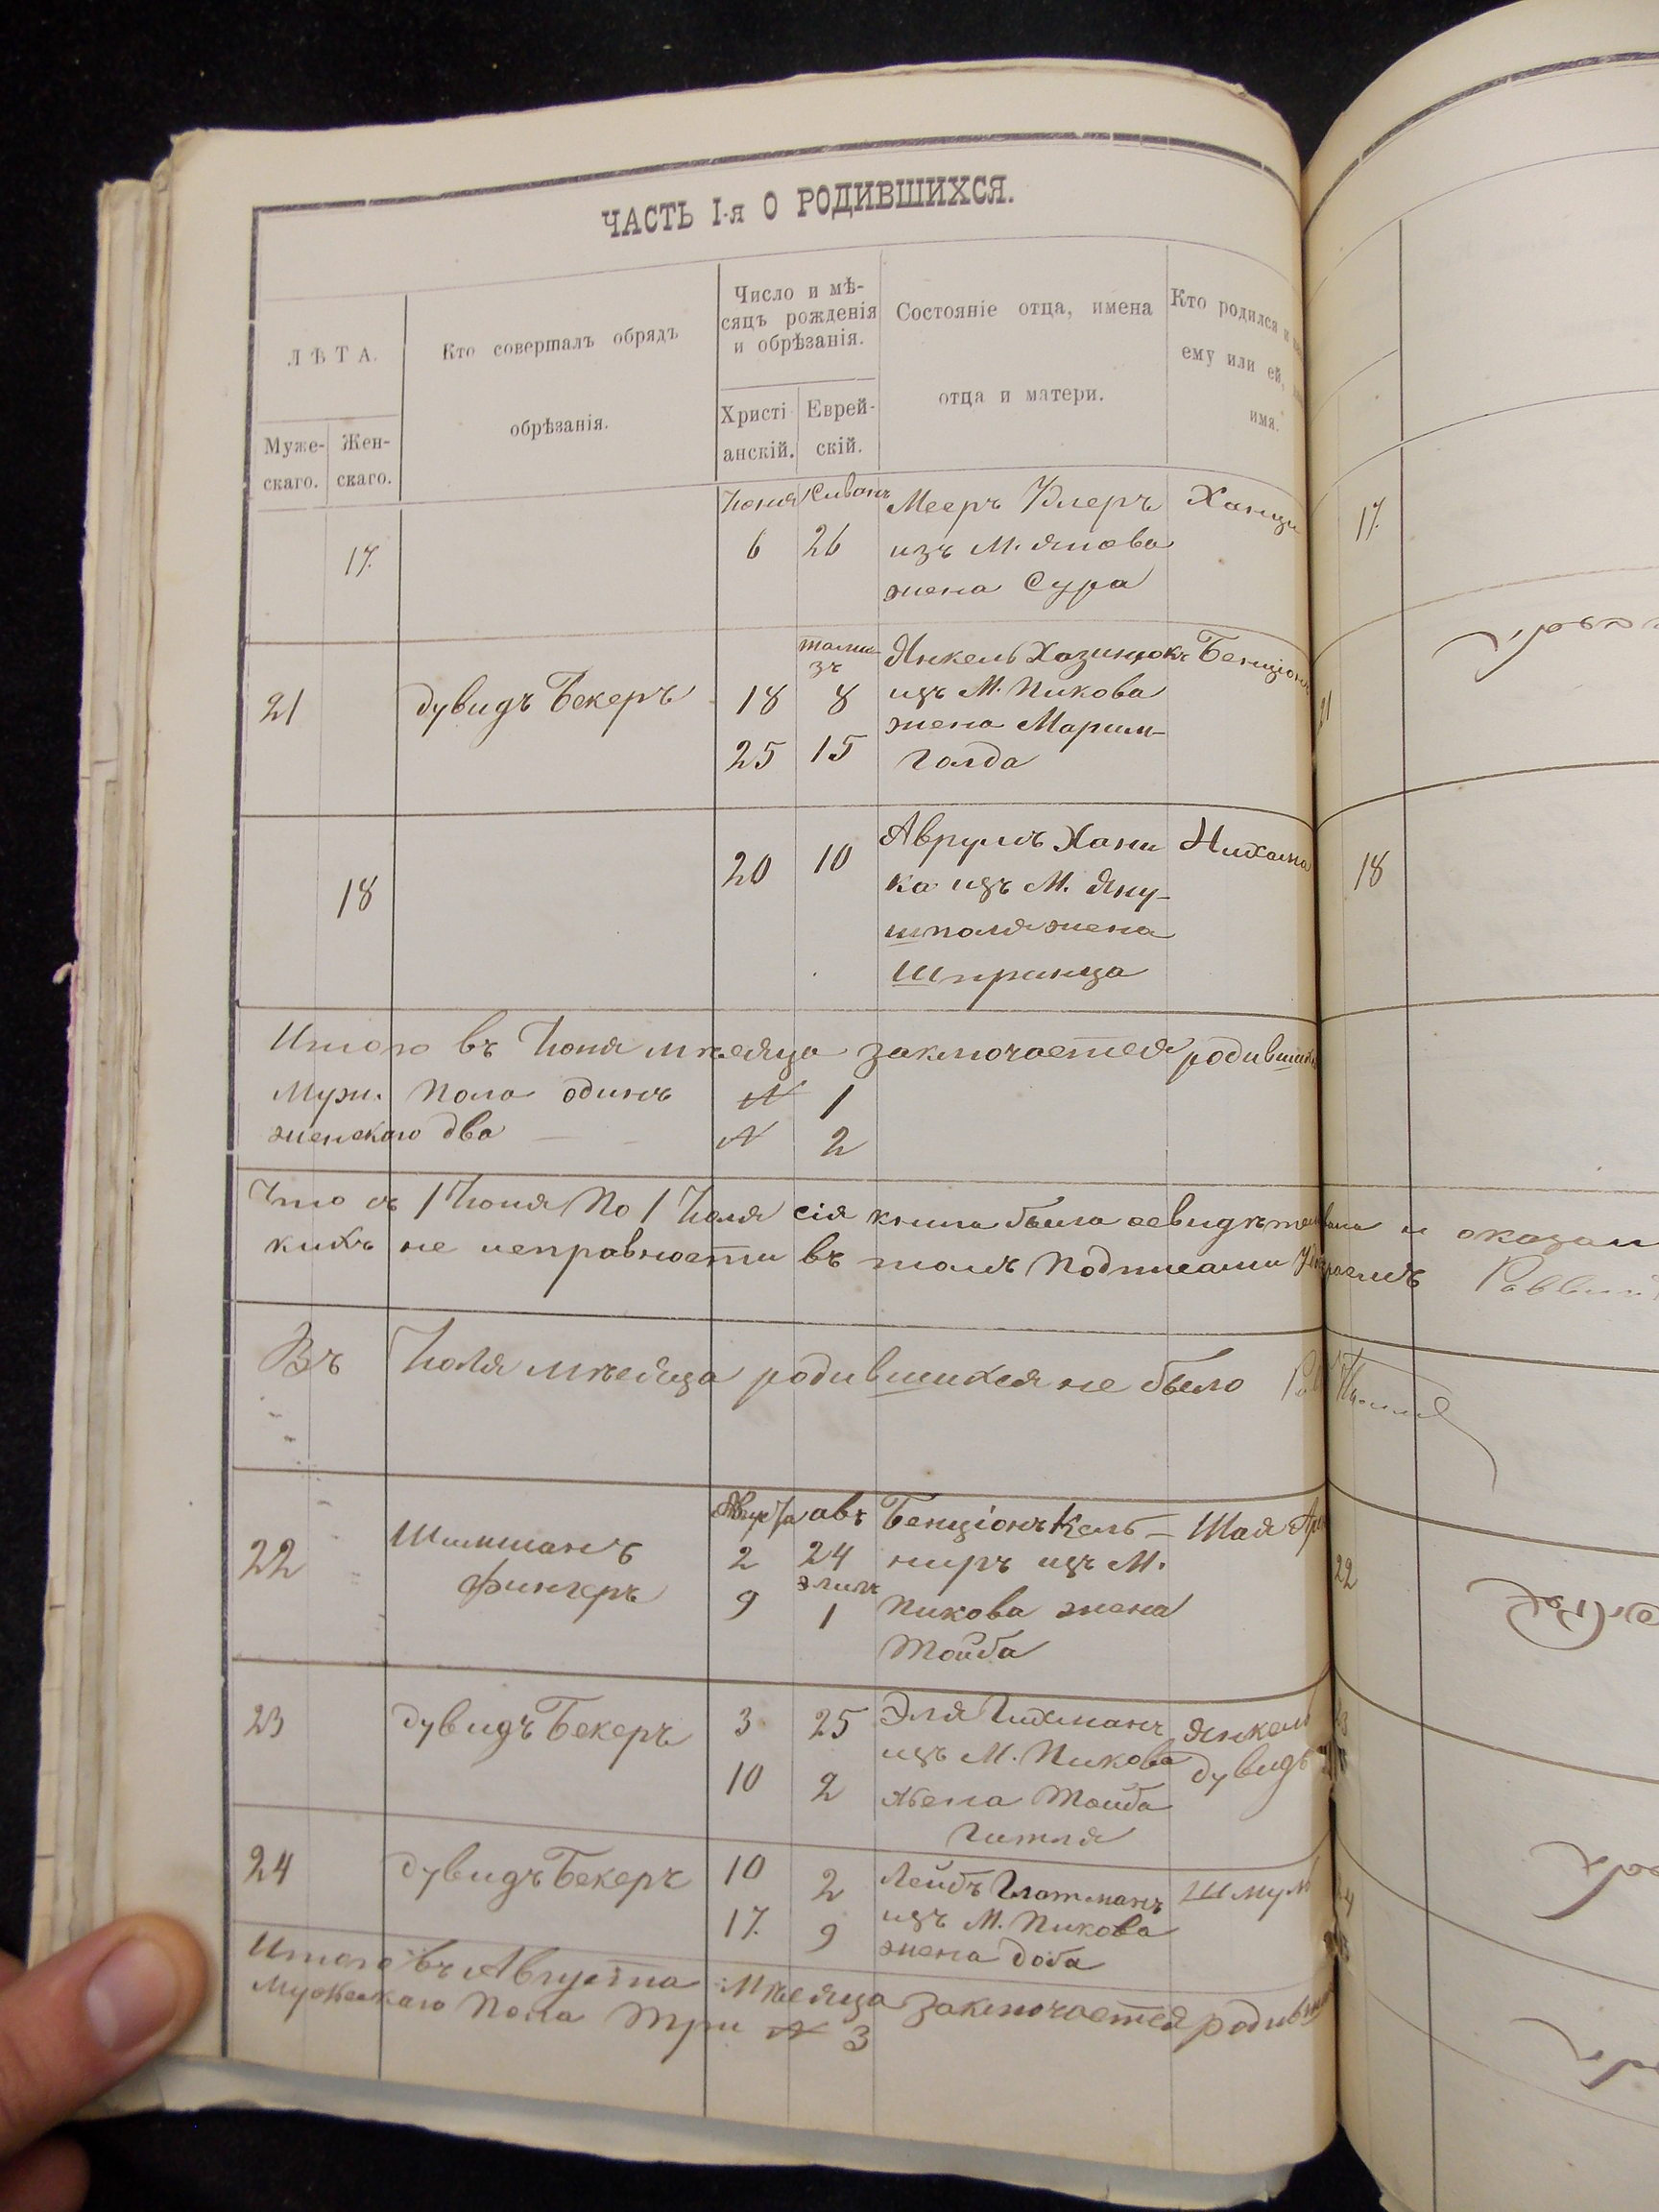 ЧАСТЬ I-я О РОДИВШИХСЯ.
ЛѢТА.
Муже-
скаго.
Жен-
скаго.
Кто совершалъ обрядъ
обрѣзанія.
Число и мѣ-
сяцъ рожденія
и обрѣзанія.
Христі
анскій.
Еврей-
скій.
Состояніе отца, имена
отца и матери.
Кто родился и
ему или ей,
имя.
Іюня Сиванъ
17. 6 26 Мееръ изъ М. Янова жена Сура
17.
21 Дувидъ Бекеръ
тамы-
зъ
18 8
25 15
Янкель Хазинцокъ Бенціонъ
изъ М. Пикова
жена Марим-
Голда
21
18 20 10
Аврумъ Хани
ка изъ М. Яну-
шполя жена
Шпринца
Нихама
18
Итого въ Іюня мѣсяца заключается родивших
Муж. пола одинъ № 1
женскаго два № 2
Что съ 1 Іюня по 1 Іюля сія книга была освидѣтельствована и оказал
кихъ не исправности въ томъ подписами Раввин
Въ Іюля мѣсяца родившихся не было
22 Шимшанъ
Финкеръ
Августа авъ
2 24
элилъ
9 1
Бенціонъ Кель-
ниръ изъ М.
Пикова жена
Тойба
Шая
22
23 Дувидъ Бекеръ 3 25
10 2
Эля Гихманъ
изъ М. Пикова
жена Тойба
Гитля
Янкель
Дувидъ
24 Дувидъ Бекеръ 10 2
17. 9
Лейбъ Глотманъ Шмуль
изъ М. Пикова
жена Доба
Итого въ Августа Мѣсяца заключается родивш
Мужескаго пола три № 3